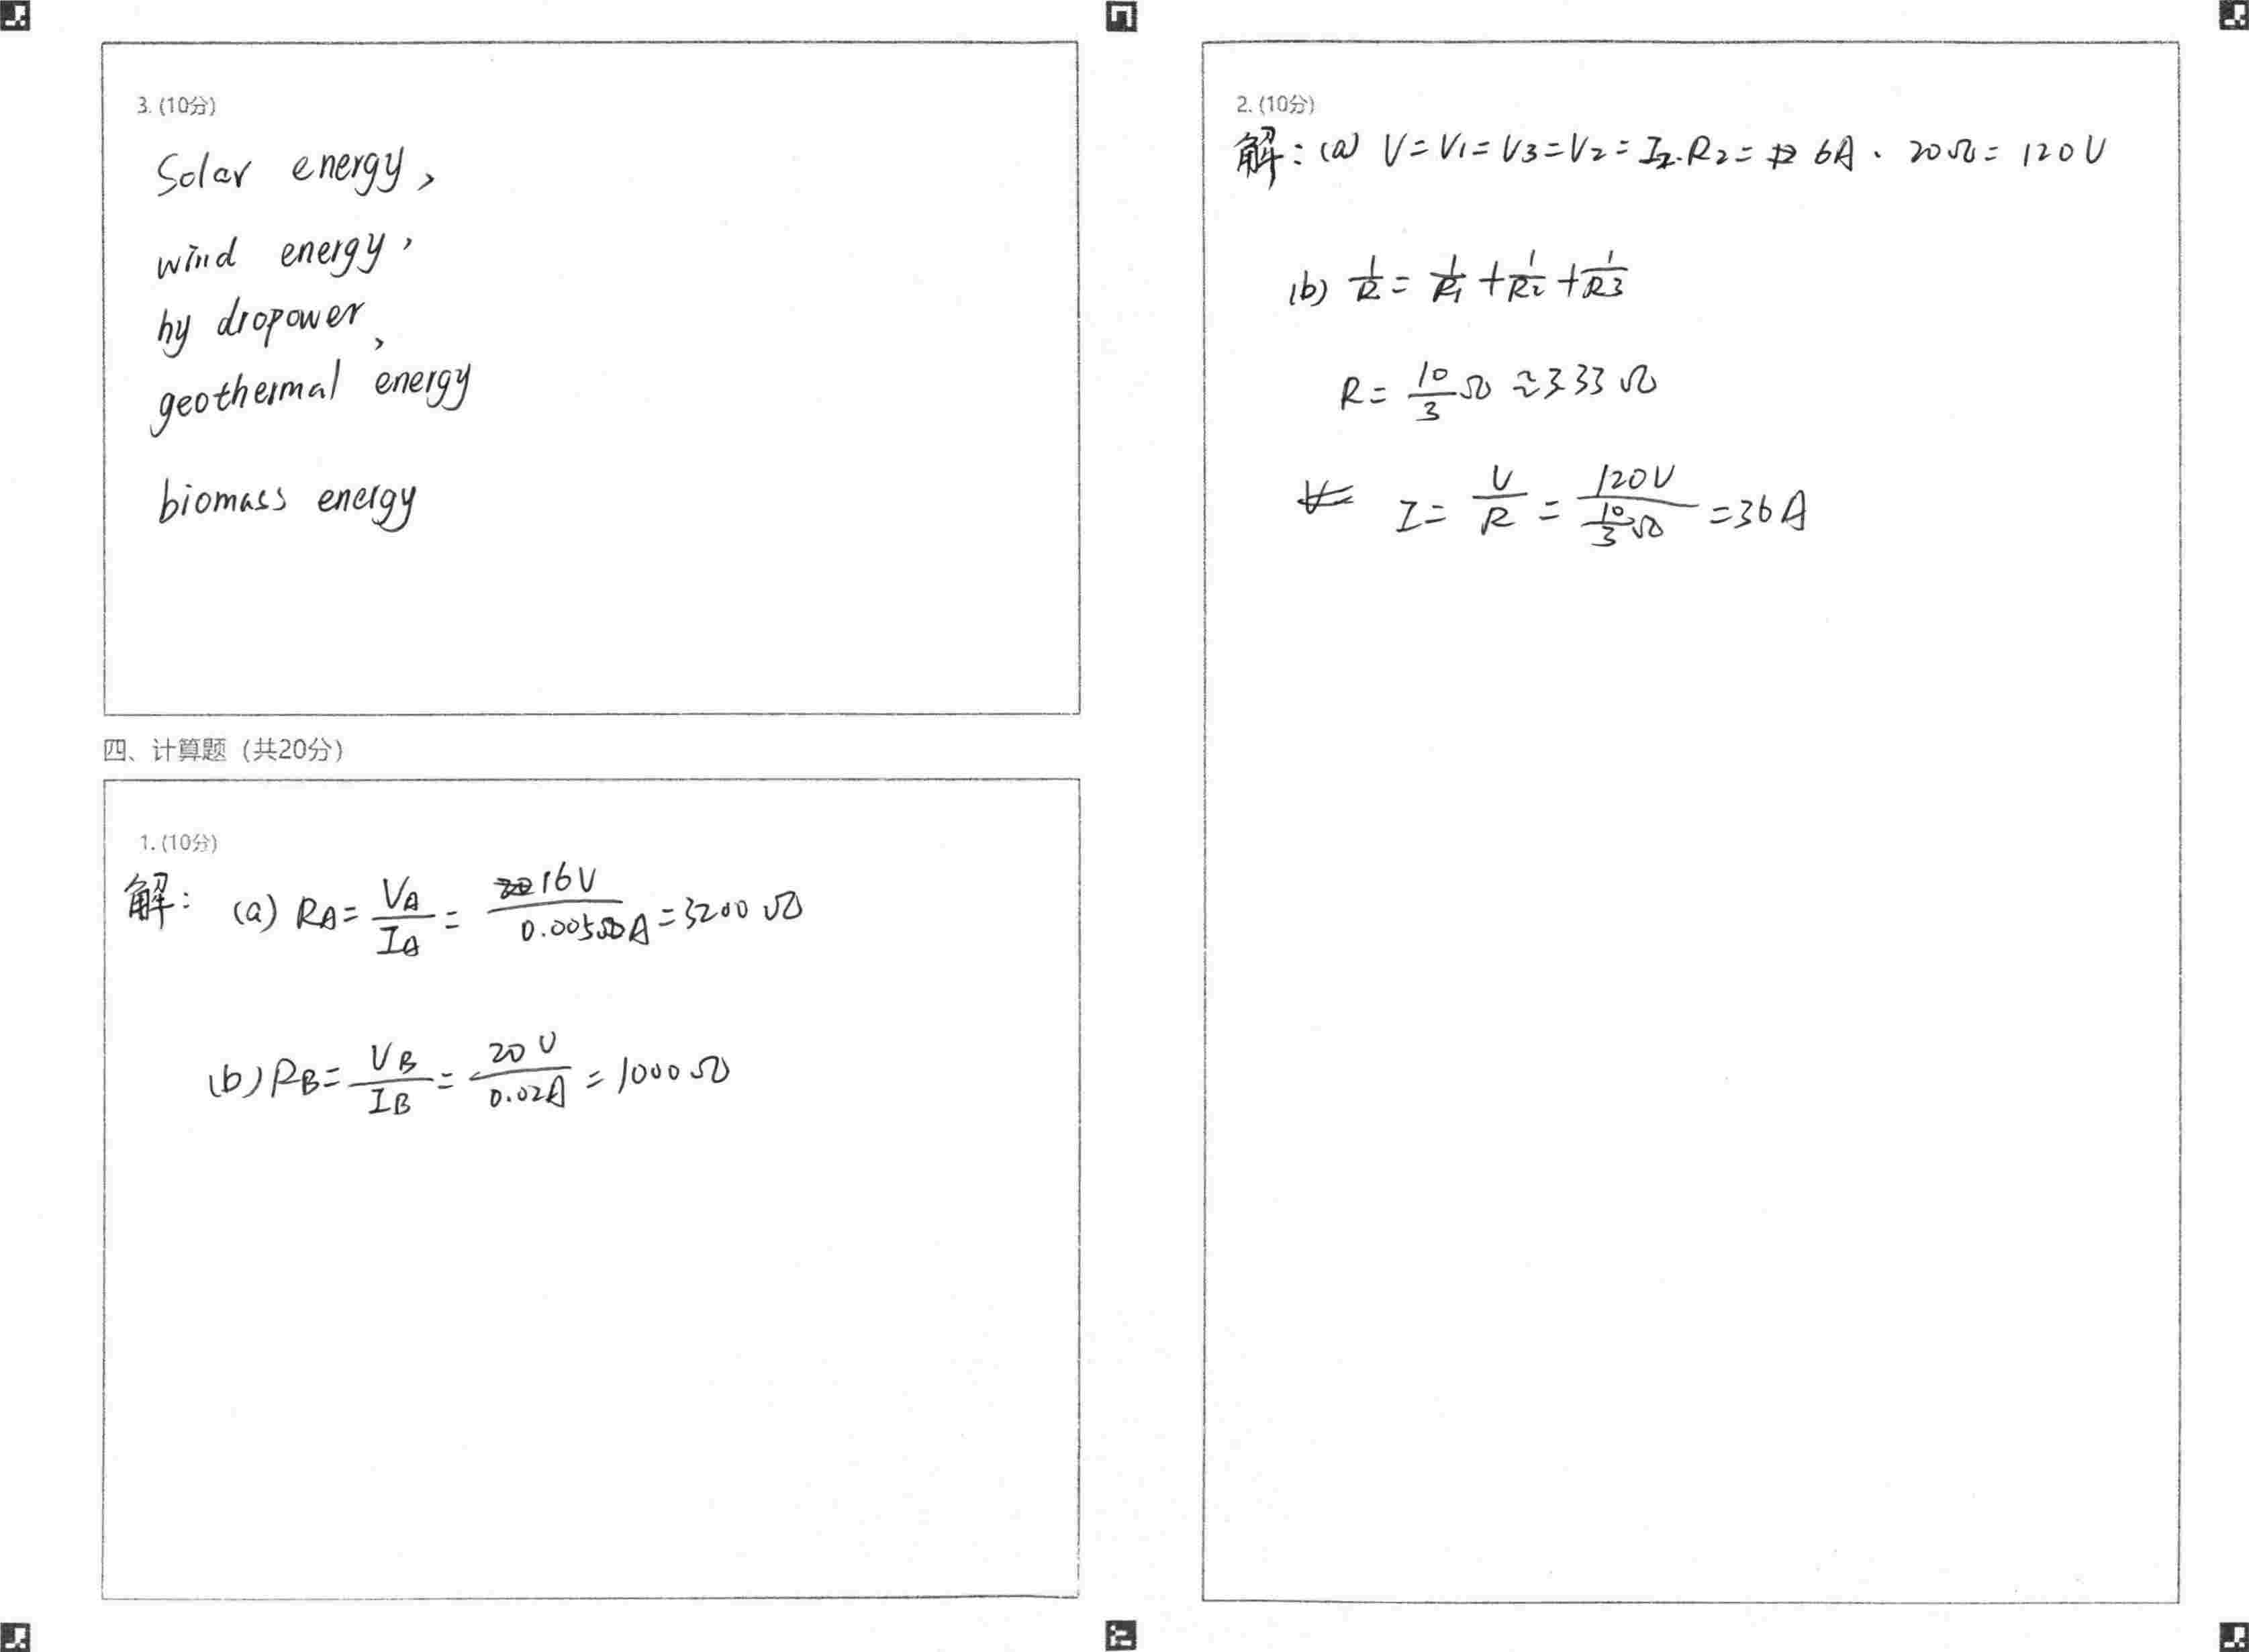 3. (10分)
Solar energy,
wind energy,
hy dropower,
geothermal energy
biomass energy
四、计算题（共20分）
1. (10分)
解: (a) RA = VA/IA = 16V/0.005A = 3200 Ω
(b) RB = VB/IB = 20V/0.02A = 1000 Ω
2. (10分)
解: (a) V = V1 = V3 = V2 = I2·R2 = 6A · 20Ω = 120V
(b) 1/R = 1/R1 + 1/R2 + 1/R3
R = 10/3 Ω ≈ 3.33 Ω
I = V/R = 120V/(10/3 Ω) = 36A